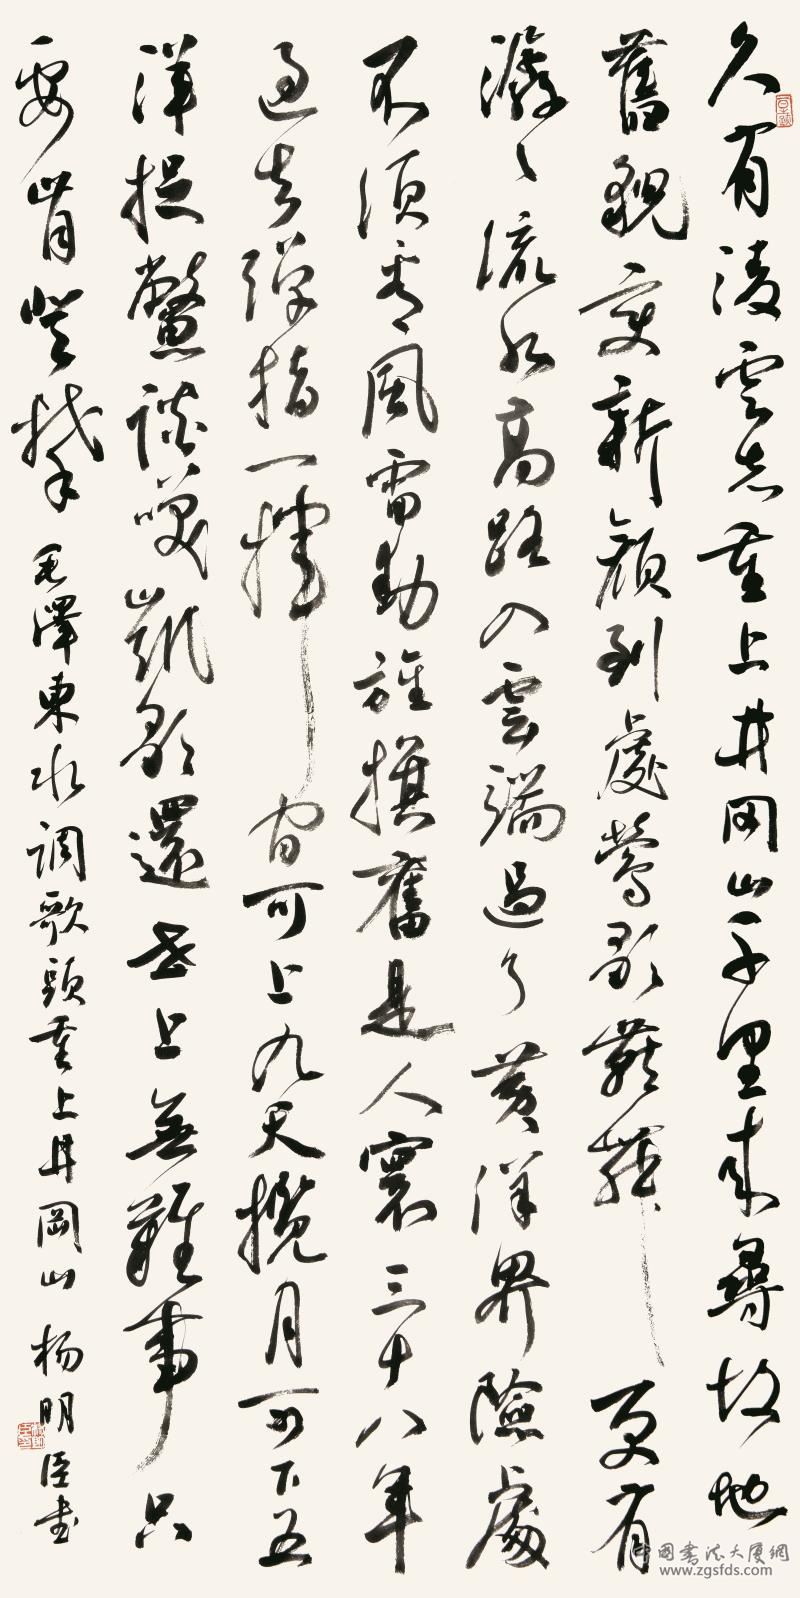 久有凌雲志重上井岡山千里來尋故地
舊貌變新顏到處鶯歌燕舞更有
潺々流水高路入雲端過了黃洋界險處
不須看風雷動旌旗奮是人寰三十八年
過去彈指一揮間可上九天攬月可下五
洋捉鱉談笑凱歌還世上無難事只
要肯登攀 毛澤東水調歌頭重上井岡山 杨明臣书
中國書法大厦網
www.zgsfds.com